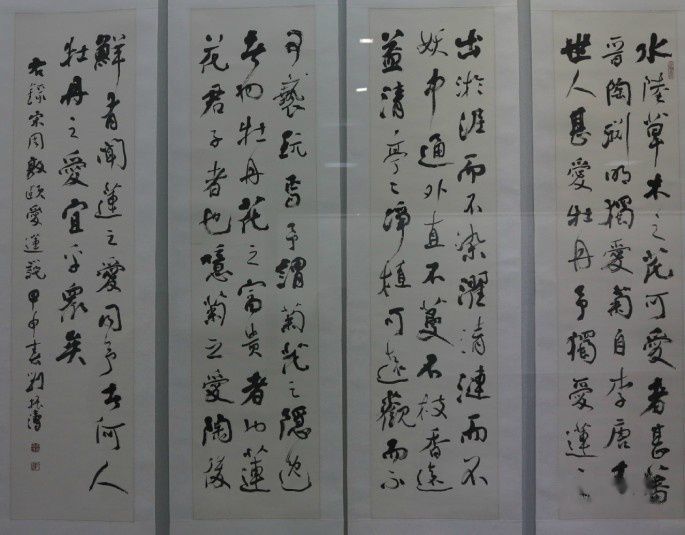 水陸草木之花可愛者甚蕃
晉陶淵明獨愛菊自李唐来
世人甚愛牡丹予獨愛蓮之
出淤泥而不染濯清漣而不
妖中通外直不蔓不枝香遠
益清亭々淨植可遠觀而不
可褻玩焉予謂菊花之隱逸
者也牡丹花之富貴者也蓮
花君子者也噫菊之愛陶後
鮮有聞蓮之愛同予者何人
牡丹之愛宜乎眾矣
右錄宋周敦頤愛蓮說甲申春劉